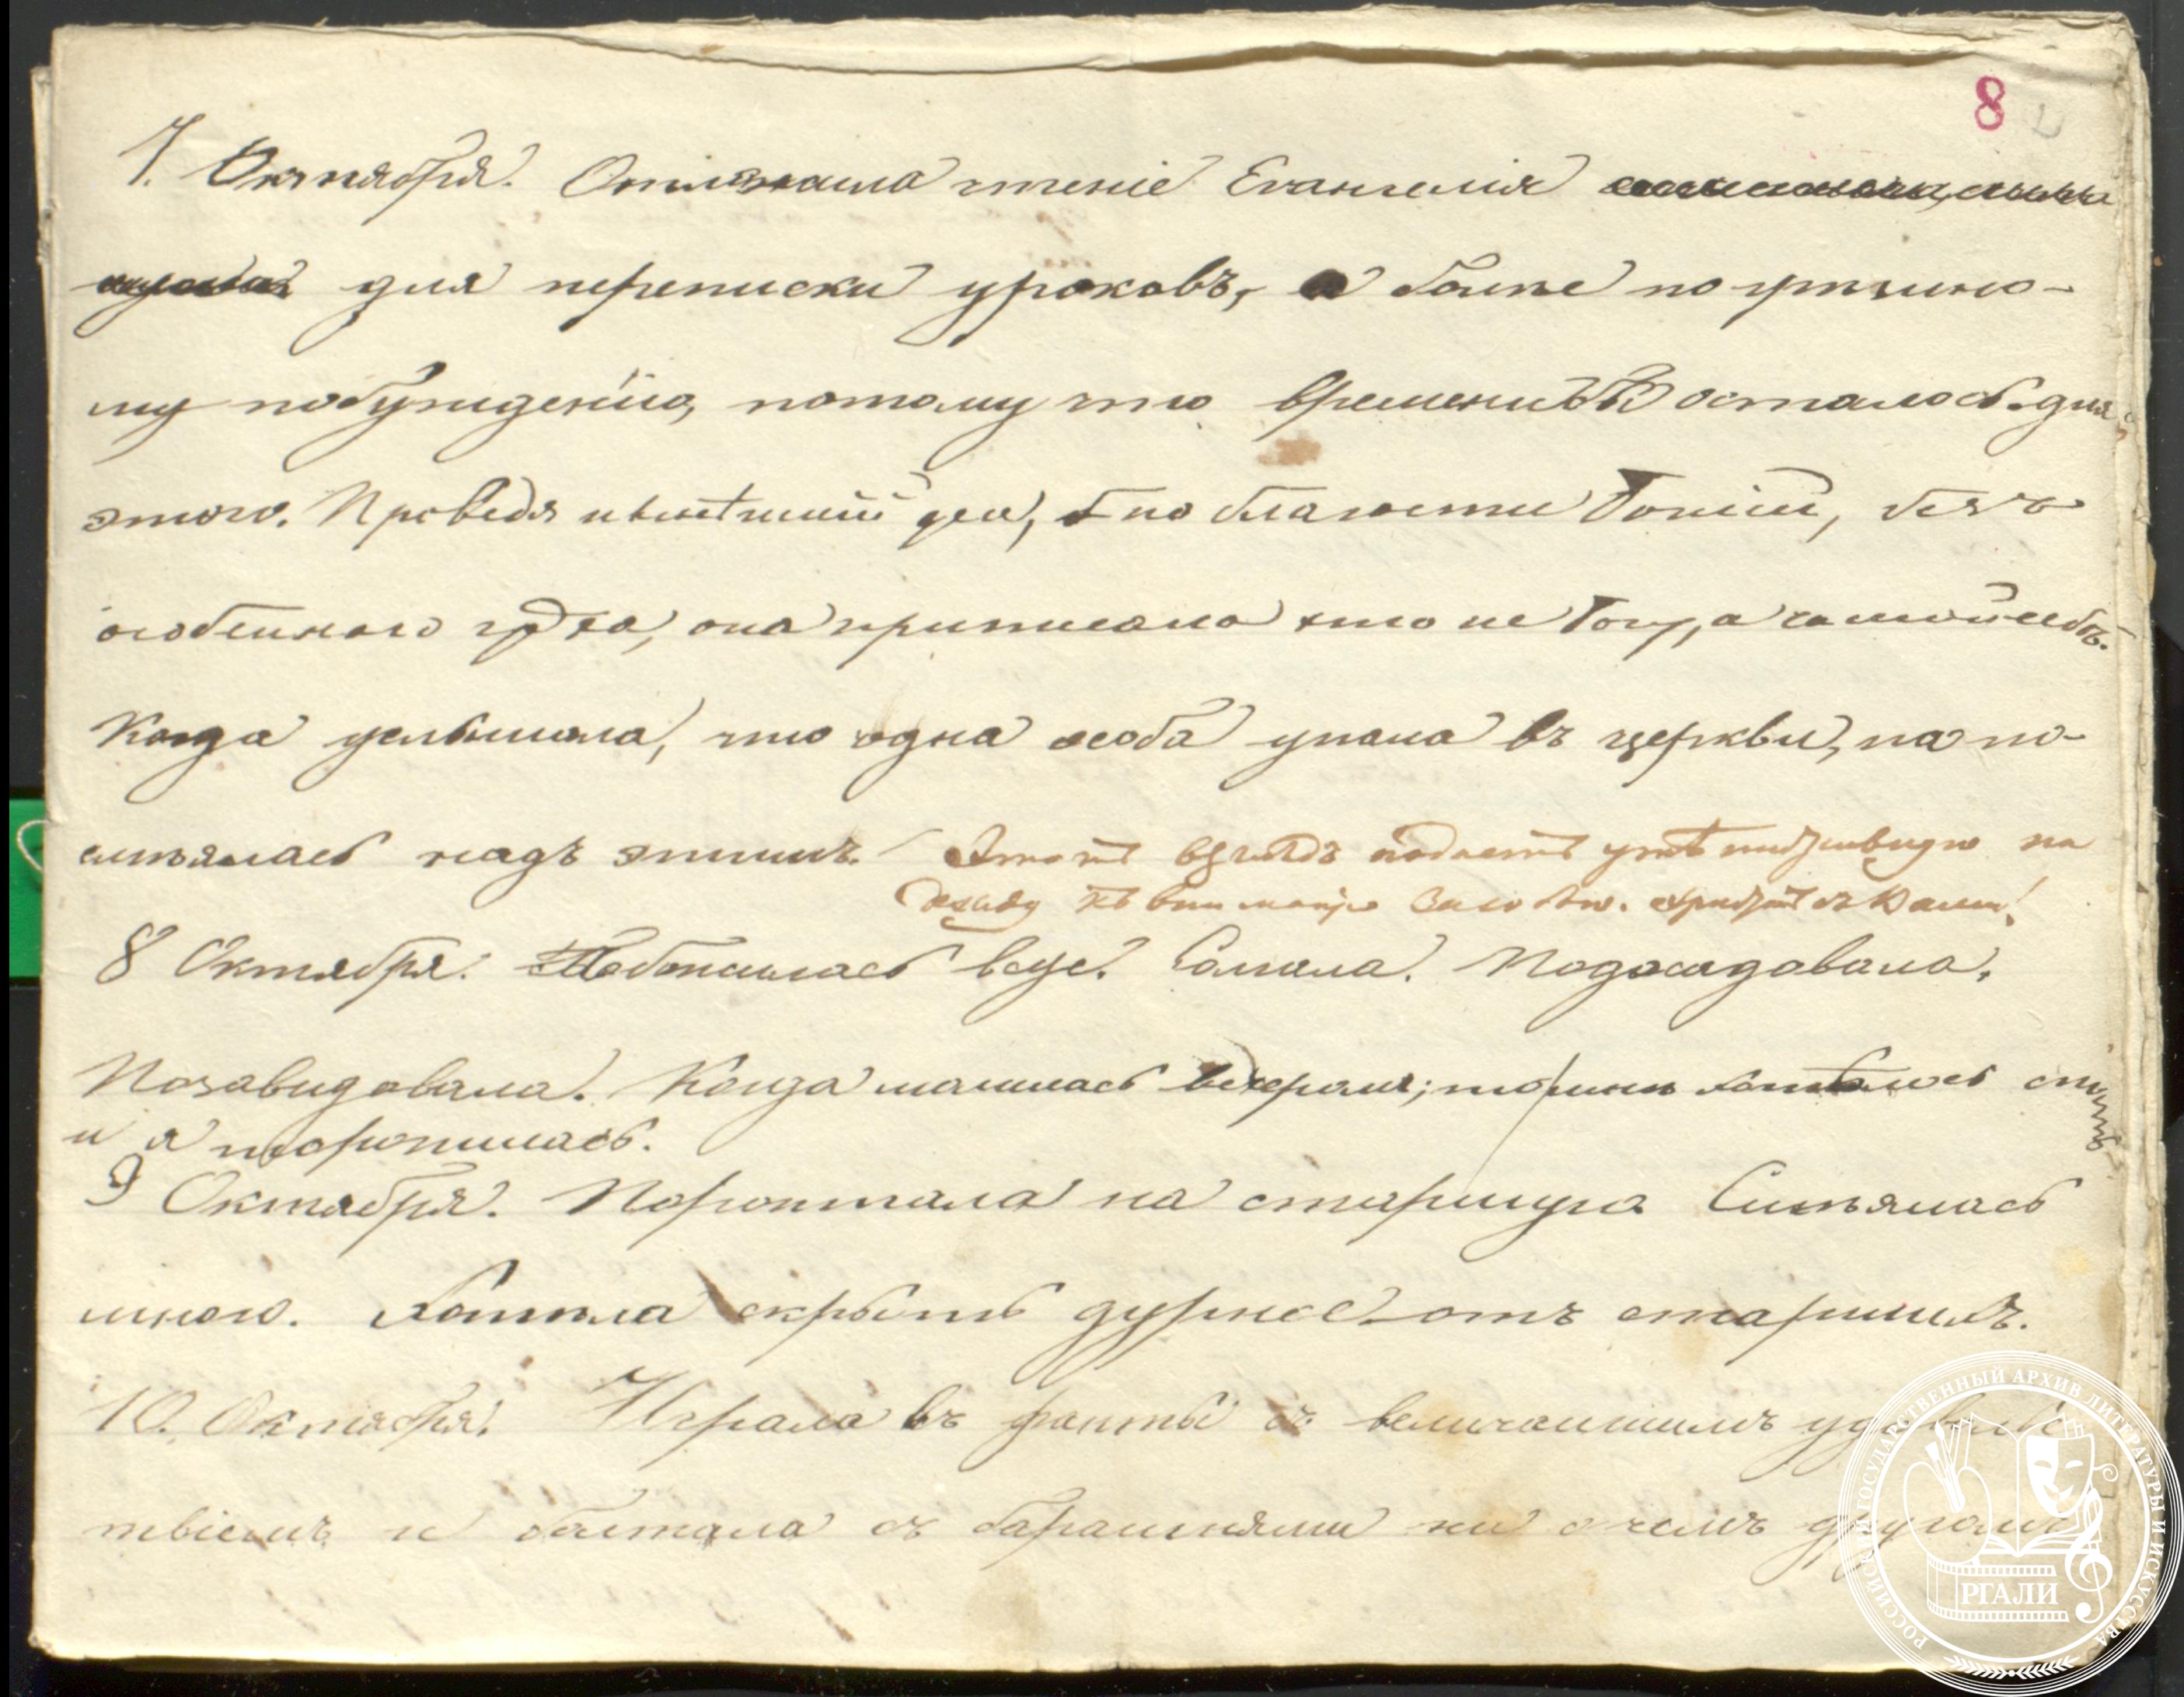 8
7. Октября. Отложила чтеніе Евангелія
для переписки уроковъ, а болѣе по грѣшно-
му побужденію, потому что времени бы осталось для
этого. Проведя нынѣшній день, по благости Божіей, безъ
особеннаго грѣха, она приписала это не Богу, а самой себѣ.
Когда услышала, что одна особа упала въ церкви, по-
смѣялась надъ этимъ. Этотъ взглядъ подаетъ
8 Октября. Побѣсилась всуе. Солгала. Подосадовала.
Позавидовала. Когда молилась вечеромъ, то мнѣ хотѣлось спать
и я торопилась.
9 Октября. Пороптала на старшую. Смѣялась
много. Хотѣла скрыть дурное отъ старшихъ.
10. Октября. Играла въ фанты съ величайшимъ удоволь
ствіемъ и болтала съ барышнями ни о чемъ другомъ
РОССИЙСКИЙ ГОСУДАРСТВЕННЫЙ АРХИВ ЛИТЕРАТУРЫ И ИСКУССТВА
РГАЛИ